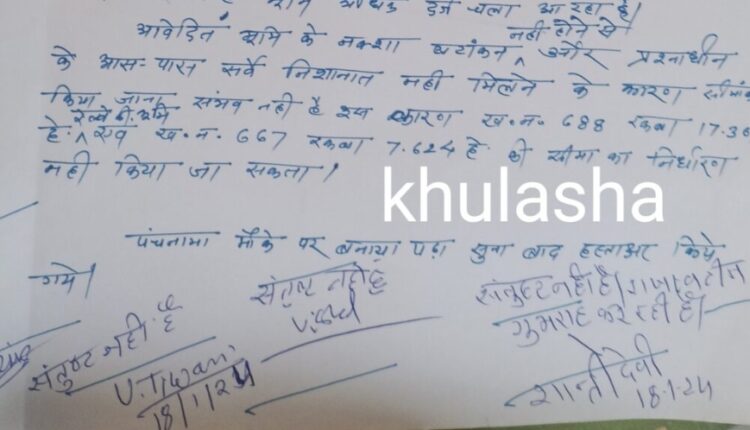 चला आ रहा है।
आवेदित भूमि के नक्शा बटांकन नहीं होने से और प्रश्नाधीन
के आस-पास सर्वे निशानात नही मिलने के कारण सीमांक
किया जाना संभव नही है इस कारण ख.न. 688 रकबा 17.30
है. रेल्वे की भूमि एवं ख.न. 667 रकबा 7.624 हे. की सीमा का निर्धारण
नही किया जा सकता।
khulasha
पंचनामा मौके पर बनाया पढ़ा सुना बाद हस्ताक्षर किये
गये।
संतुष्ट नही है
संतुष्ट नहीं है
V. Tiwari
18/1/24
संतुष्ट नहीं है।
गुमराह कर रही है।
शान्ती देवी
18-1-24